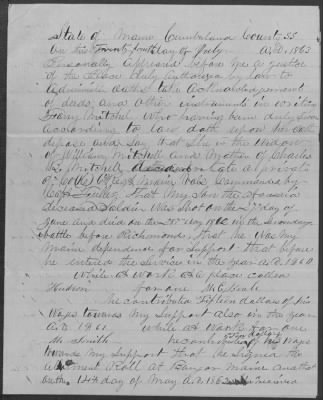 State of Maine Cumberland County SS
on this Twenty fourth day of July A.D. 1863
Personally appeared before me a Justice
of the Peace duly authorized by law to
administer oaths take acknowledgement
of deeds, and other instruments in writing
Mary Mitchel who having been duly Sworn
according to law doth upon her oath
depose and Say that She is the widow
of William Mitchell and Mother of Charles
Mitchell deceased late a private
of Co Regt Maine Vols Commanded by
Capt that My Son the aforesaid
deceased Soldier was shot on the day of
June and died on the 1862 in the
battle before Richmond. that he was My
Maine dependence for Support. that before
he entered the service in the year A.D. 1860
while at work at a place called
Hudson for one
he contributed Fifteen dollars of his
Wages towards My Support also in the year
A.D. 1861 while at work for one
Mr Smith he contributed of his Wages
towards My Support that he signed the
Roll at Bangor Maine and took
oath. 14th day of May A.D. 1862 received